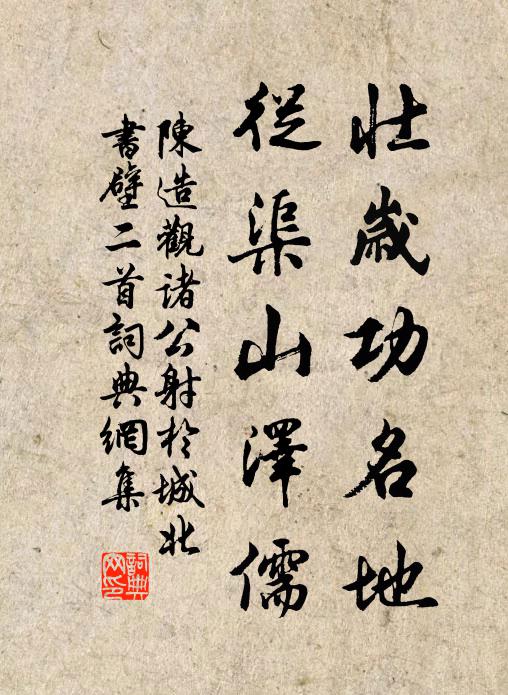 壯歲功名地
從渠山澤儒
陳造觀諸公射於城北
書壁二首詞典網集
詞典網印